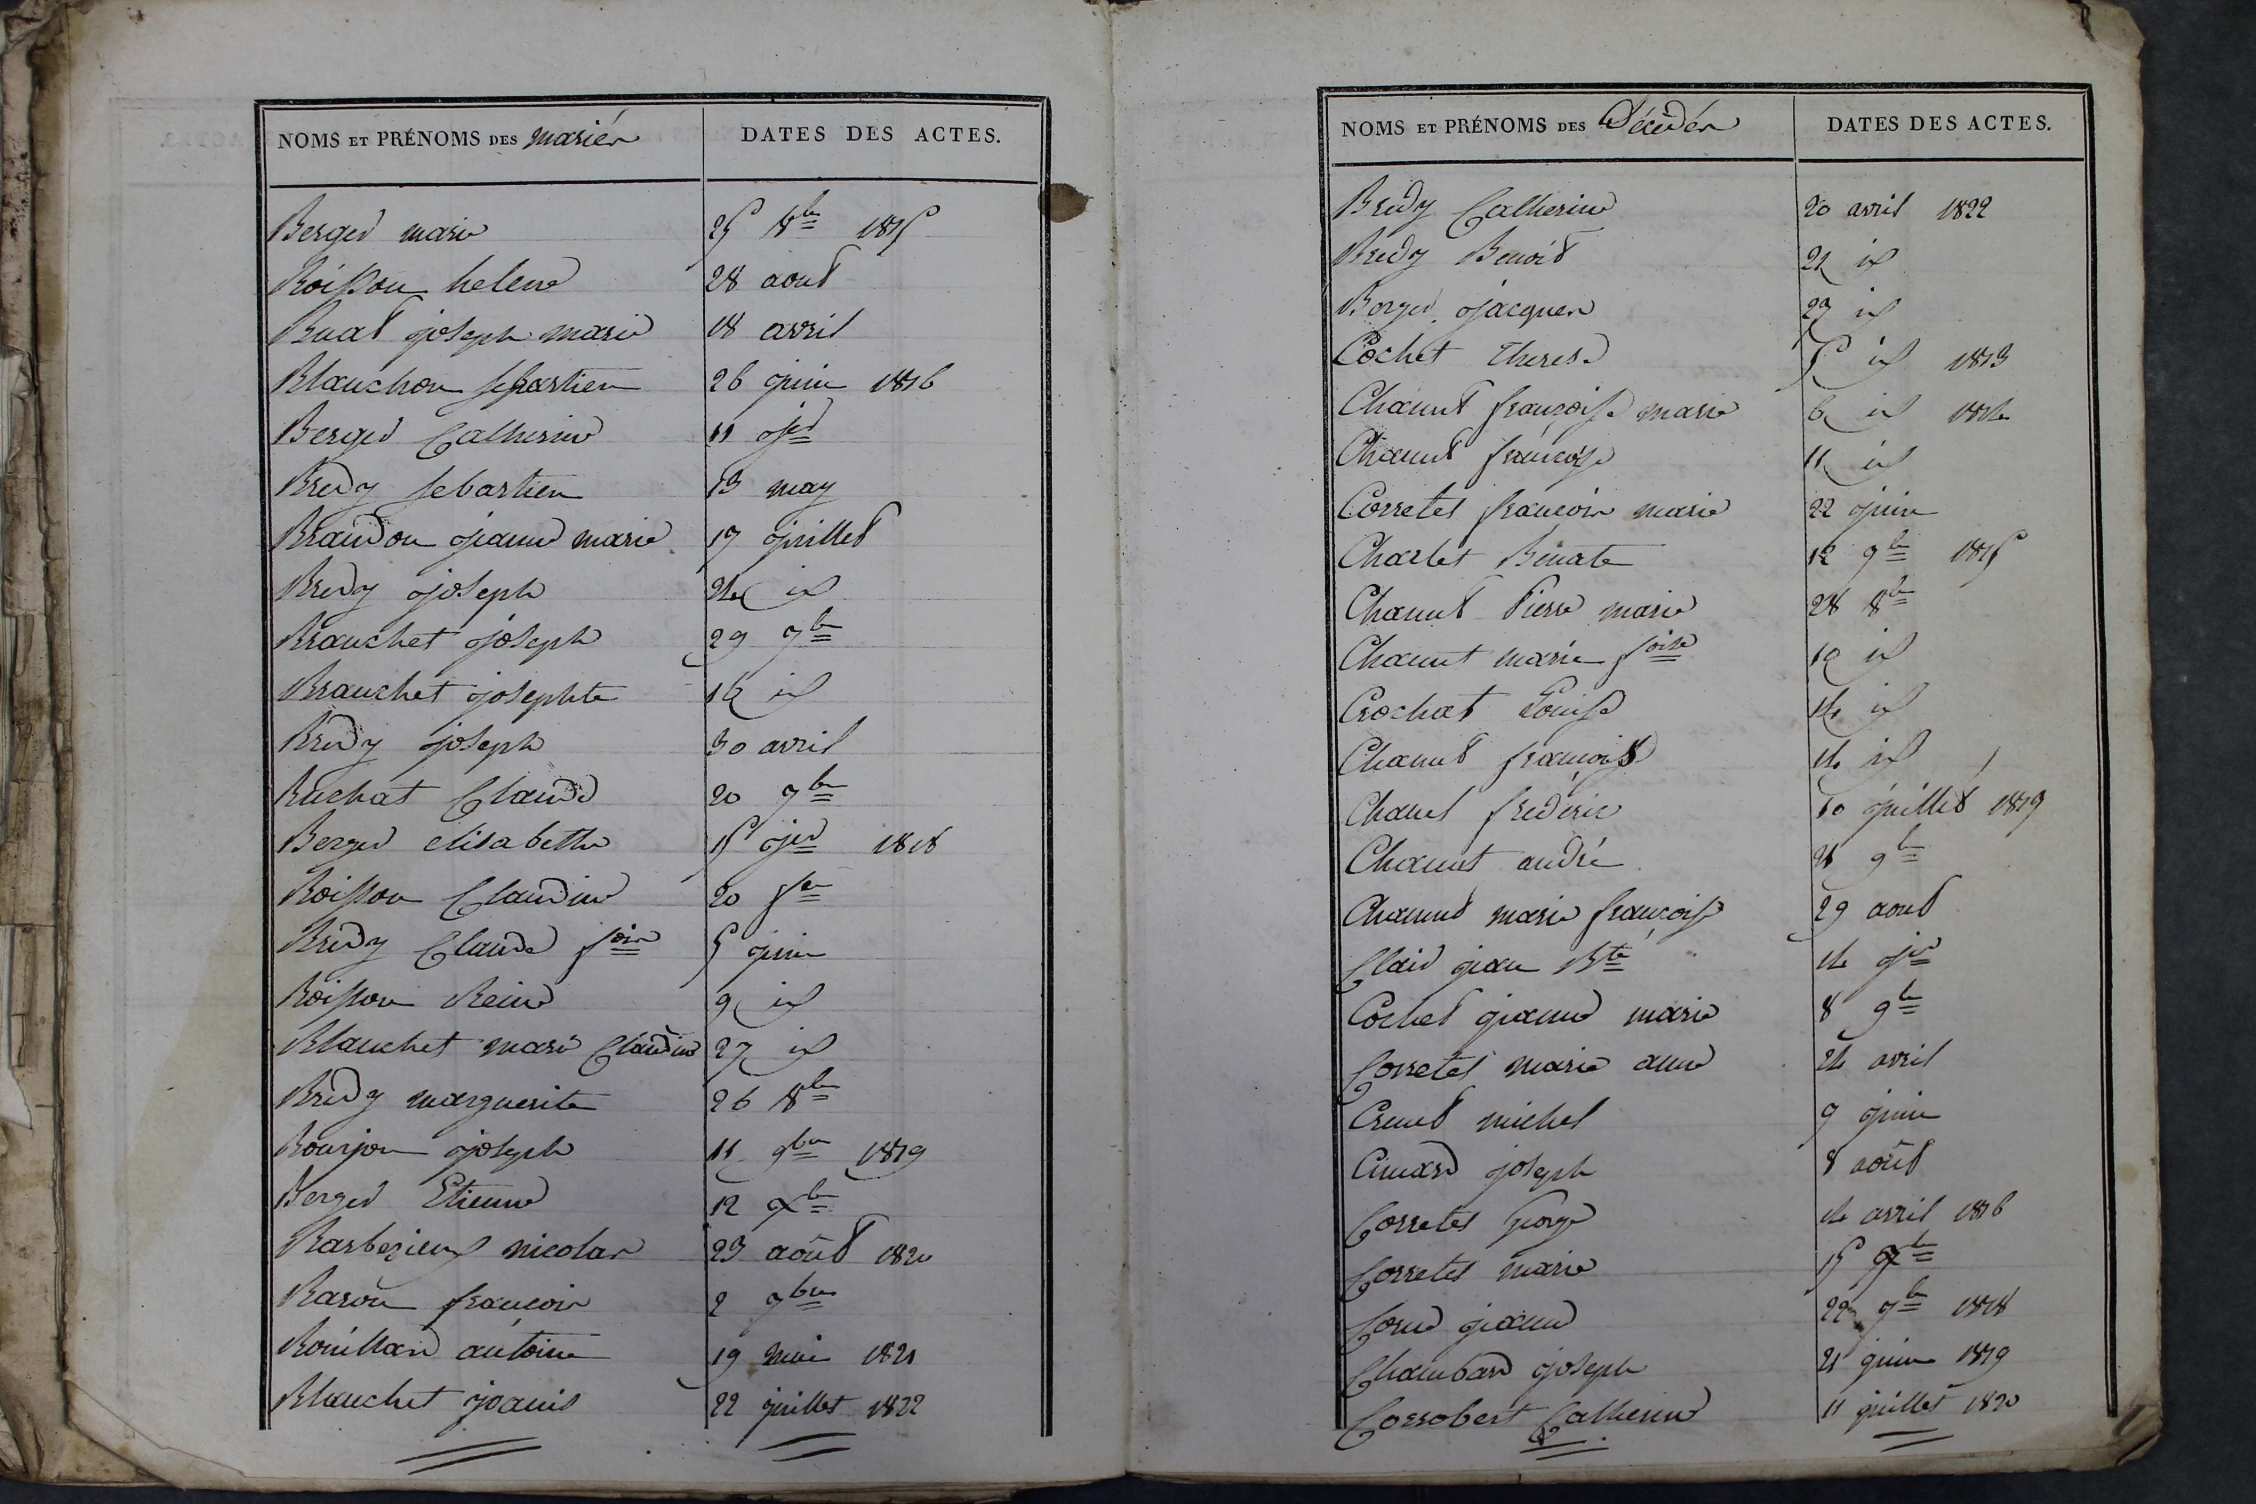 NOMS ET PRÉNOMS DES mariés DATES DES ACTES.
Berger marie 25 8bre 1815
Boisson helene 28 aout
Buat joseph marie 18 avril
Blanchon sebastien 26 juin 1816
Berger Catherine 11 jer
Bredy sebastien 13 may
Brandon jeanne marie 17 juillet
Bredy joseph 24 id
Branchet joseph 29 7bre
Branchet josephte id
Bredy joseph 30 avril
Buchat Claude 20 7bre
Berger elisabethe 15 jer 1818
Boisson Claudine 20 fer
Bredy Claude fois 5 juin
Boisson Reine 9 id
Blanchet marie Claudine 27 id
Bredy marguerite 26 8bre
Bourjon joseph 11 9bre 1819
Berger Etienne 12 Xbre
Barbezieux nicolas 23 août 1820
Baron francois 2 7bre
Rouillard antoine 19 mai 1821
Blanchet joanis 22 juillet 1822
NOMS ET PRÉNOMS DES Décédés DATES DES ACTES.
Bredy Catherine 20 avril 1822
Bredy Benoit 21 id
Borger jacques 23 id
Cochet Therese 5 id 1813
Chanut françoise marie 6 id 1814
Chanut françoise 11 id
Corretel francois marie 22 juin
Charlet Benate 12 9bre 1815
Chanut Pierre marie 28 8bre
Chanut marie foise id
Crochat Louise 14 id
Chanut françoise 14 id
Chanel frederic 10 juillet 1819
Chanut andré 21 9bre
Chanut marie françoise 29 aout
Clair jean Bte 14 jer
Cochet jeanne marie 8 9bre
Corretel marie anne 24 avril
Creut michel 9 juin
Cimard joseph 8 août
Corretel George 14 avril 1816
Corretel marie 15 Xbre
jeanne 22 7bre 1818
Chambard joseph 21 juin 1819
Corrobert Catherine 11 juillet 1820